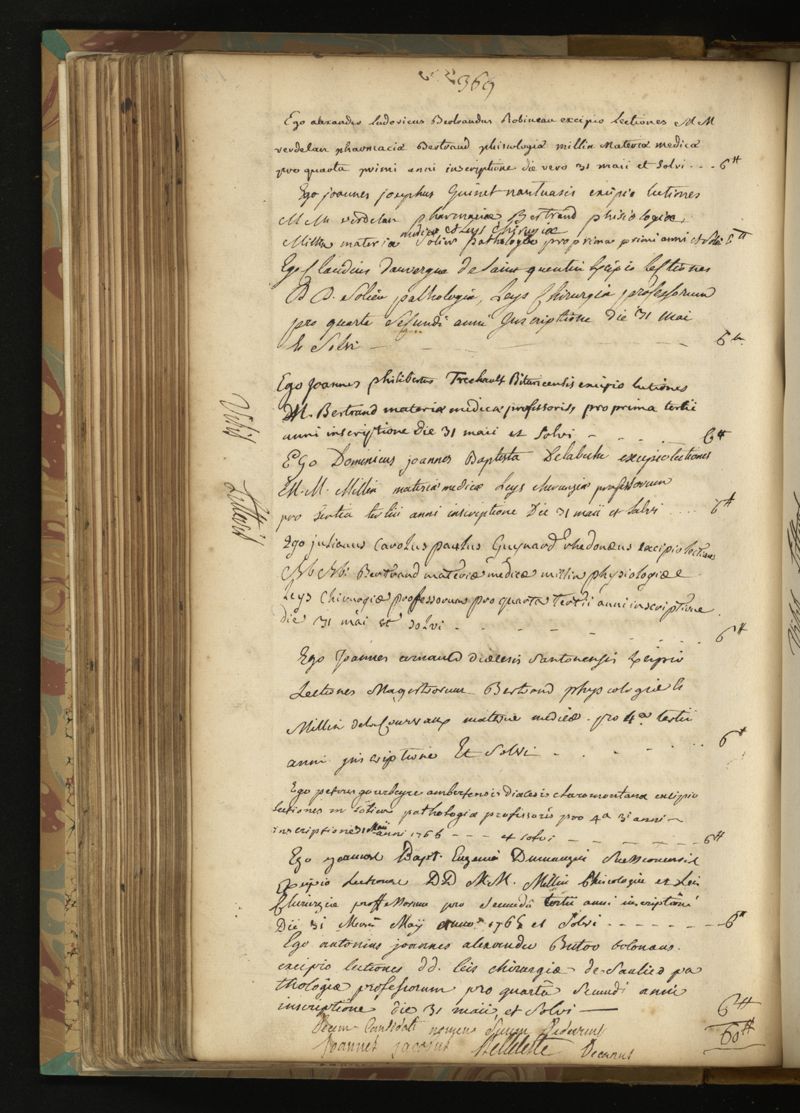 369
Ego alexander ludovicus Bertrandus Robineau excipio Lectiones M M
verdelan pharmaciæ Bertrand phisiologiæ millin materiæ medicæ
pro quarta primi anni inscriptione die vero 31 maii et Solvi - - - 6tt
Ego joannes josephus Guinet nantuasis excipio lectiones
M M. verdelan pharmaciæ Bertrand phisiologiæ,
medicæ et Leys Chirurgiæ
Millin materiæ Solier pathologiæ pro prima primi anni et Solvi 6tt
Ego Claudius Dauvergne de Saint quentin Excipio lectiones
D D. Solier pathologiæ, Leys Chirurgiæ professorum
pro quarta Secundi anni Inscriptione Die 31 Mai
Et Solvi - - - 6tt
Ego Joannes philibertus Trechault Bituricensis excipio lectiones
M. Bertrand materiæ medicæ professoris, pro prima tertii
anni inscriptione Die 31 maii et Solvi - - - 6tt
EGo Dominicus joannes Baptista Delabiche excipio lectiones
M. M. Millin materiæ medicæ Leys chirurgiæ professorum
pro tertia tertii anni inscriptione Die 31 maii et Solvi - - - 6tt
Ego julianus Carolus paulus Guynard rhedonæus excipio lectiones
Bertrand materiæ medicæ millin physiologiæ
Leys Chirurgiæ professorum pro quarta tertii anni inscriptione
die 31 mai et solvi - - - 6tt
Ego Joannes arnauld diœcesis Santonensis Excipio
Lectiones Magistrorum Bertrand physcologiæ et
Millin delaCourvaux materiæ medicæ - pro 4a tertii
anni inscriptione Et Solvi - - - 6tt
Ego petrus gourbeyre ambertensis diœcesis claromontanæ excipio
lectiones m solier pathologiæ professoris pro 4a 3i anni
inscriptione 31 Maii anni 1766 - - - et solvi - - - 6tt
Ego joannes Bapt. Eugenius Suessionensis
Excipio Lectiones DD M.M. Millin Phisiologiæ et Leis
Chirurgiæ professorum pro Secunda tertii anni inscriptione
Die 31 Maij anno 1766 et Solvi - - - 6tt
Ego antonius joannes alexander
excipio lectiones dd. leis chirurgiæ de Saulier pa
thologiæ professorum pro quarta Secundi anni
inscriptione die 31 maii et Solvi - 6tt
Decem Candidati nomina Suum Dederunt 60tt
Joannes jacobus Belleteste Decanus